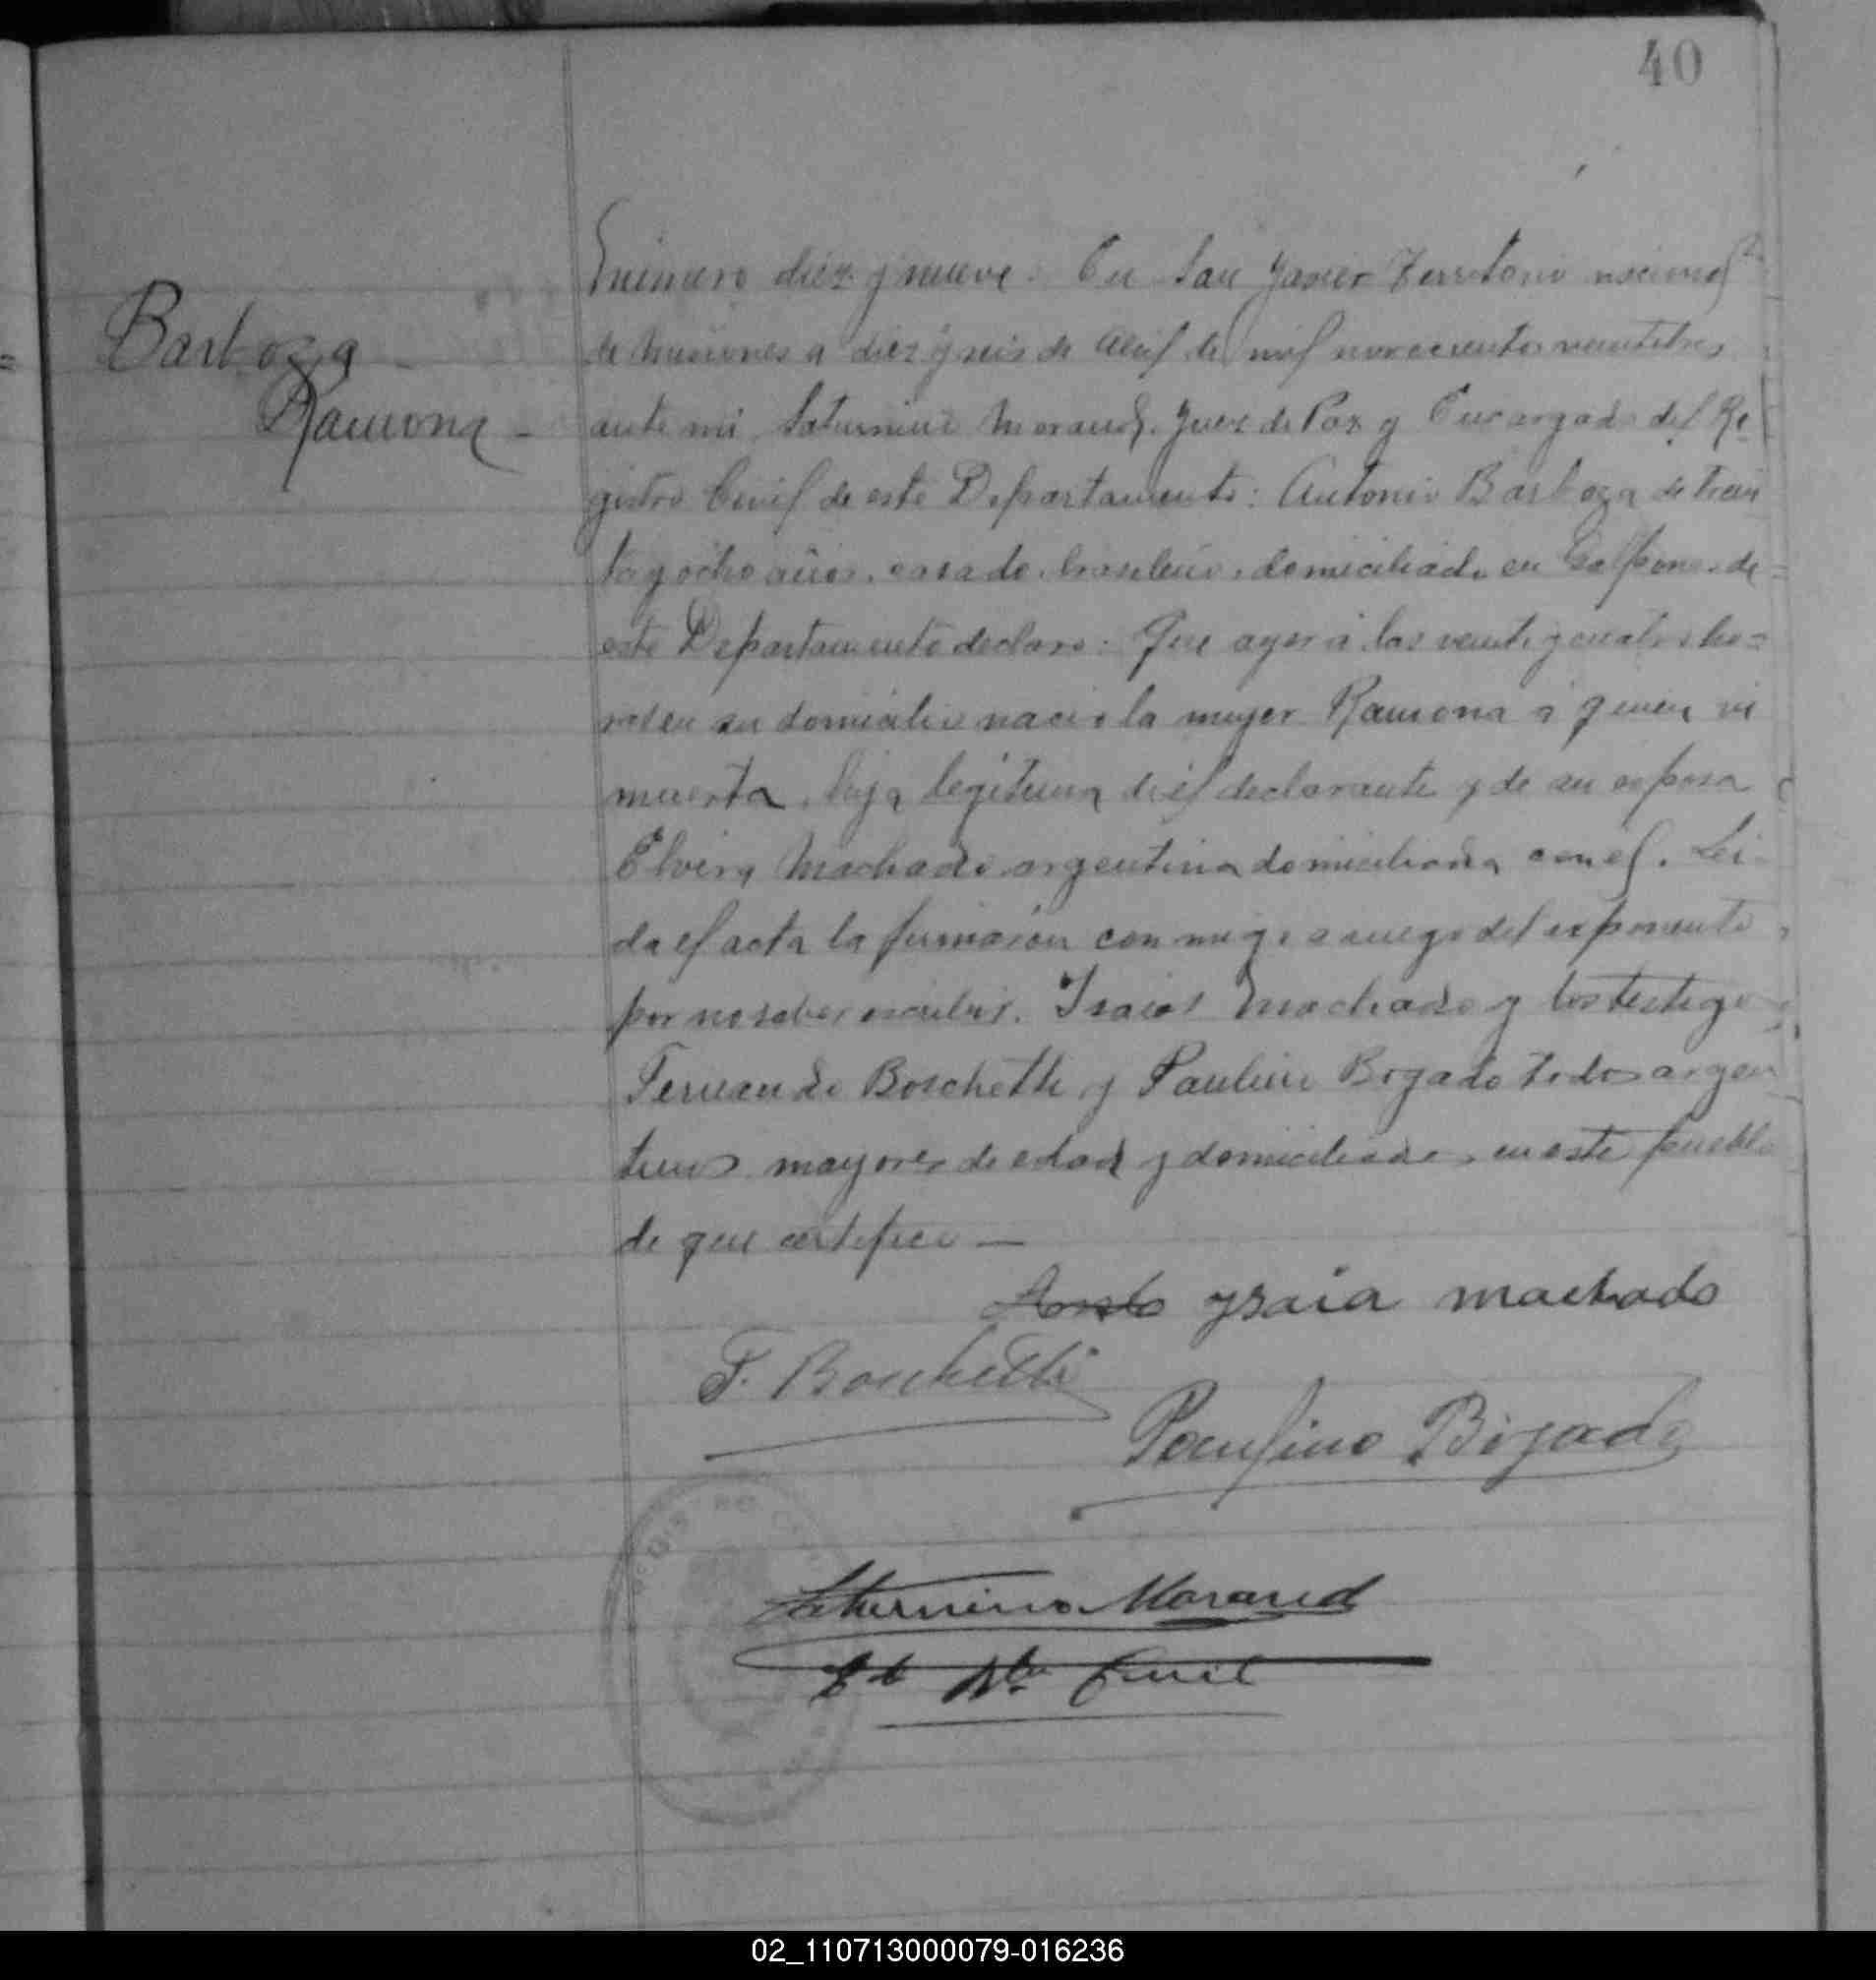 40
Barboza
Ramona -
Número diez y nueve. En San Javier Territorio nacional
de Misiones a diez y seis de Abril de mil novecientos veintitres
ante mi, Saturnino Morand, Juez de Paz y Encargado del Re-
gistro Civil de este Departamento: Antonio Barboza de trein
ta y ocho años, casado, brasilero, domiciliado en Galpones de
este Departamento declaro: Que ayer á las veinte y cuatro ho=
ras en su domicilio nacio la mujer Ramona á quien vi
muerta, hija legitima del declarante y de su esposa
Elvira Machado argentina domiciliada con él. Lei-
da el acta la firmaron conmigo a ruego del exponente,
por no saber escribir, Isaias Machado y los testigos
Fernando Boschetti y Paulino Bogado todos argen
tinos mayores de edad y domiciliados en este pueblo
de que certifico —
ysaia machado
F. Boschetti
Paulino Bogado
Saturnino Morand